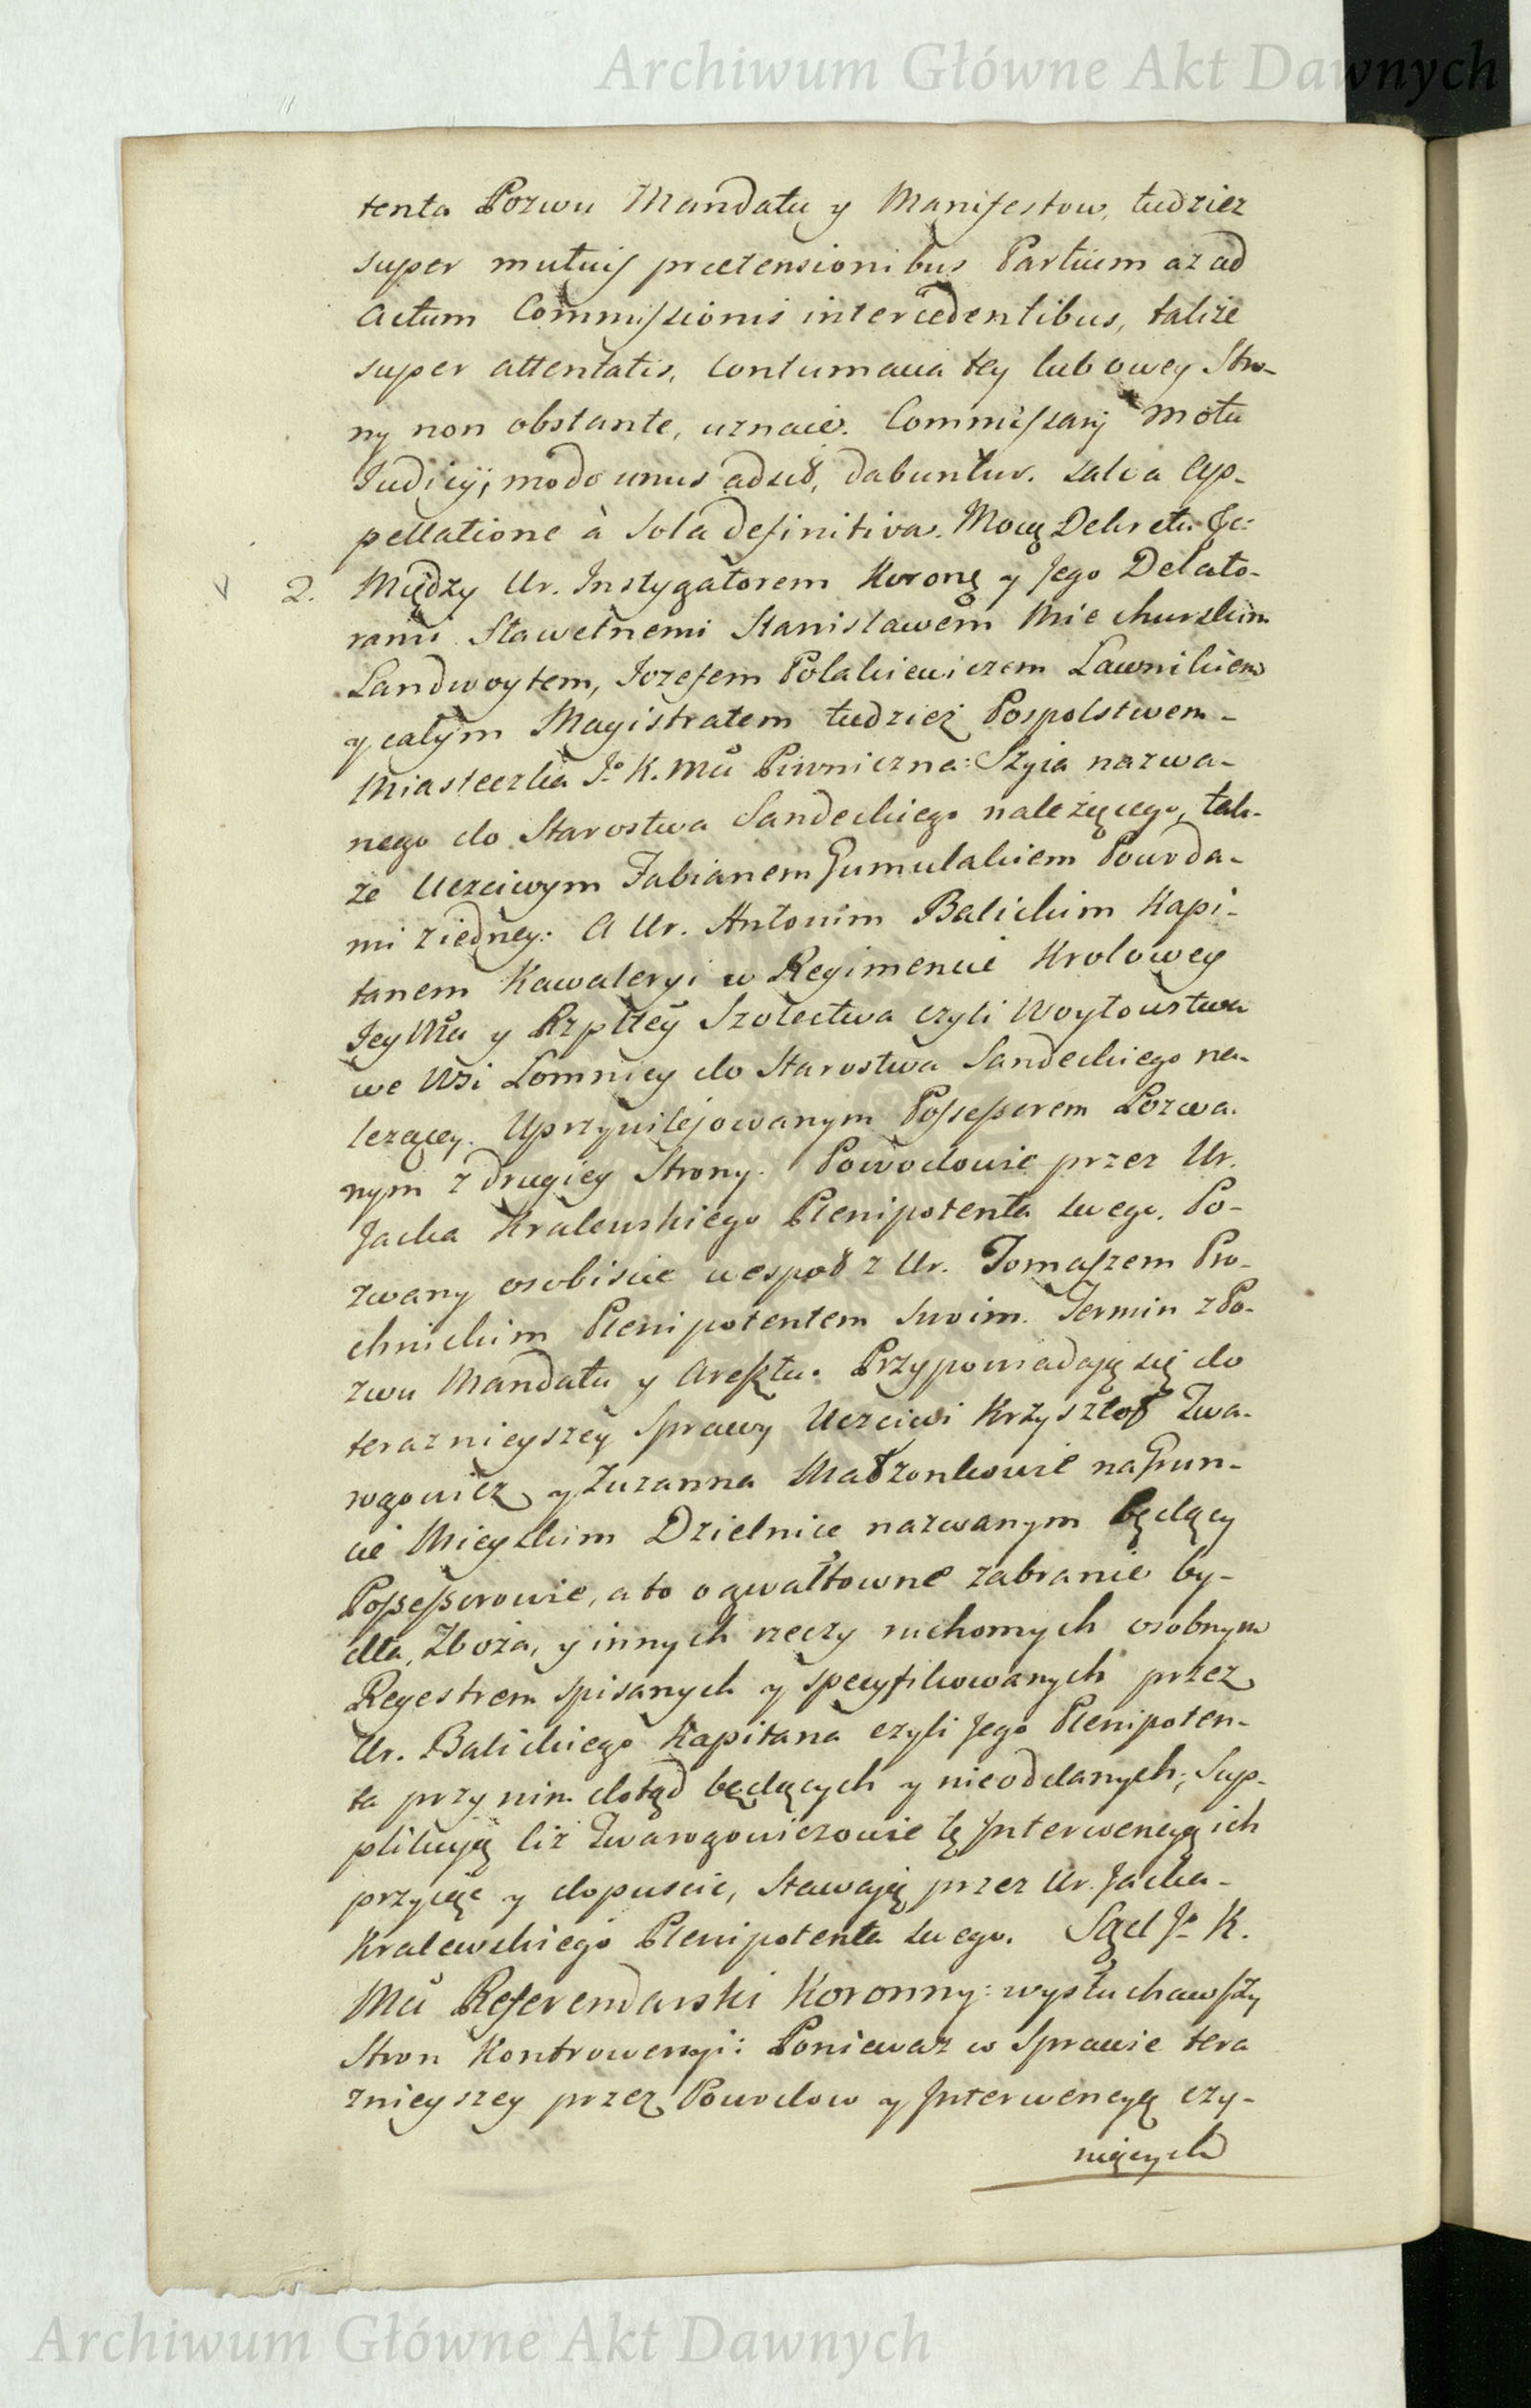 Archiwum Główne Akt Dawnych
tenta Pozwu Mandatu y Manifestow, tudziez
super mutuis praetensionibus Partium az ad
Actum Commissionis intercedentibus, takze
super attentatis, contumacia tey lub owey Stro-
ny non obstante, uznaie. Commissarij motu
Judicij, modo unus adsit, dabuntur. salva Ap-
pellatione à sola definitiva. Mocą Dekretu &c:
2. Między Ur. Instygatorem Koroną y Jego Delato-
rami Sławetnemi Stanisławem Miechurskim
Landwoytem, Jozefem Polakiewiczem Ławnikiem
y całym Magistratem tudzież Pospolstwem -
Miasteczka Jo K. Mći Piwniczna: Szyia nazwa-
nego do Starostwa Sandeckiego należącego, tak-
ze Uczciwym Fabianem Gumulakiem Powoda-
mi z iedney: A Ur. Antonim Balickim Kapi-
tanem Kawaleryi w Regimencie Krolowey
Jey Mći y Rzpltey Szołectwa czyli Woytowstwa
we Wsi Łomnicy do Starostwa Sandeckiego na-
lezącey. Uprzywilejowanym Possessorem Pozwa-
nym z drugiey Strony. Powodowie przez Ur.
Jacka Kralewskiego Plenipotenta swego. Po-
zwany osobiscie wespoł z Ur. Tomaszem Pro-
chnickim Plenipotentem swoim. Termin z Po-
zwu Mandatu y Aresztu. Przypowiadają się do
teraznieyszey Sprawy Uczciwi Krzysztof Zwa-
rogowicz y Zuzanna Małzonkowie na Grun-
cie Mieyskim Dzielnice nazwanym będący
Possessorowie, a to o gwałtowne zabranie by-
dła, Zboża, y innych rzeczy ruchomych osobnym
Regestrem spisanych y specyfikowanych przez
Ur. Balickiego Kapitana czyli Jego Plenipoten-
ta przy nim dotąd będących y nieoddanych; Sup-
plikują ciz Zwarogowiczowie tę Interwencyą ich
przyiąć y dopuscić, Stawają przez Ur. Jacka -
Kralewskiego Plenipotenta swego. Sąd Jo K.
Mći Referendarski Koronny: wysłuchawszy
Stron Kontrowersyi: Poniewaz w Sprawie tera
znieyszey przez Powodow y Interwencyą czy-
niących
Archiwum Główne Akt Dawnych